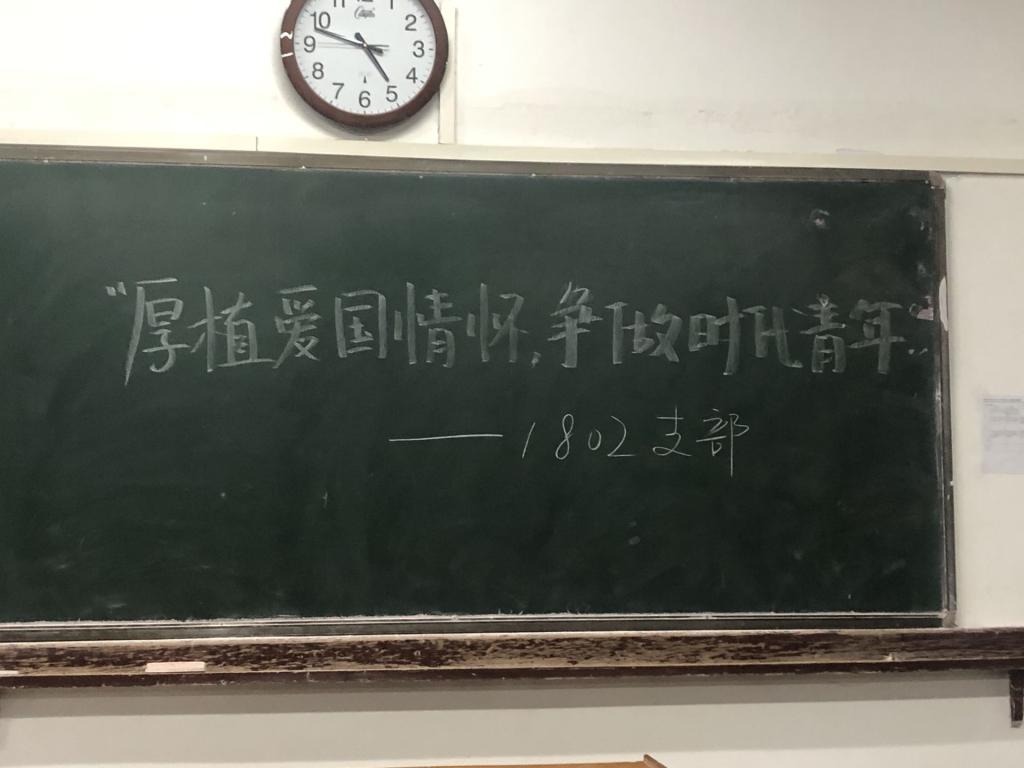 12
1
2
3
4
5
6
7
8
9
10
"厚植爱国情怀,争做时代青年"
——1802支部